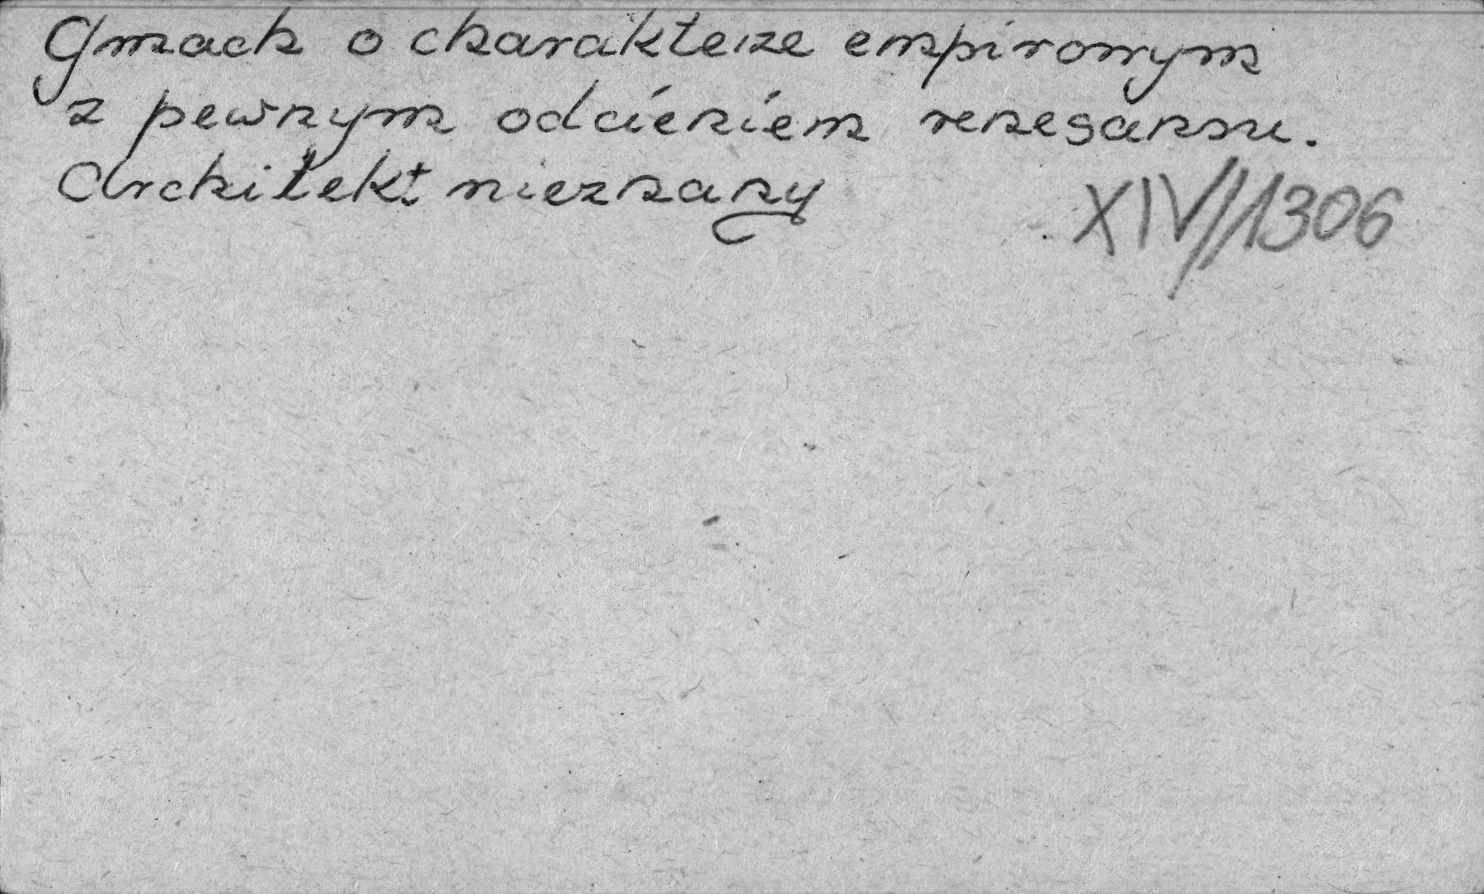 Gmach o charakterze empirowym
z pewnym odcieniem renesansu.
Architekt nieznany
XIV/1306